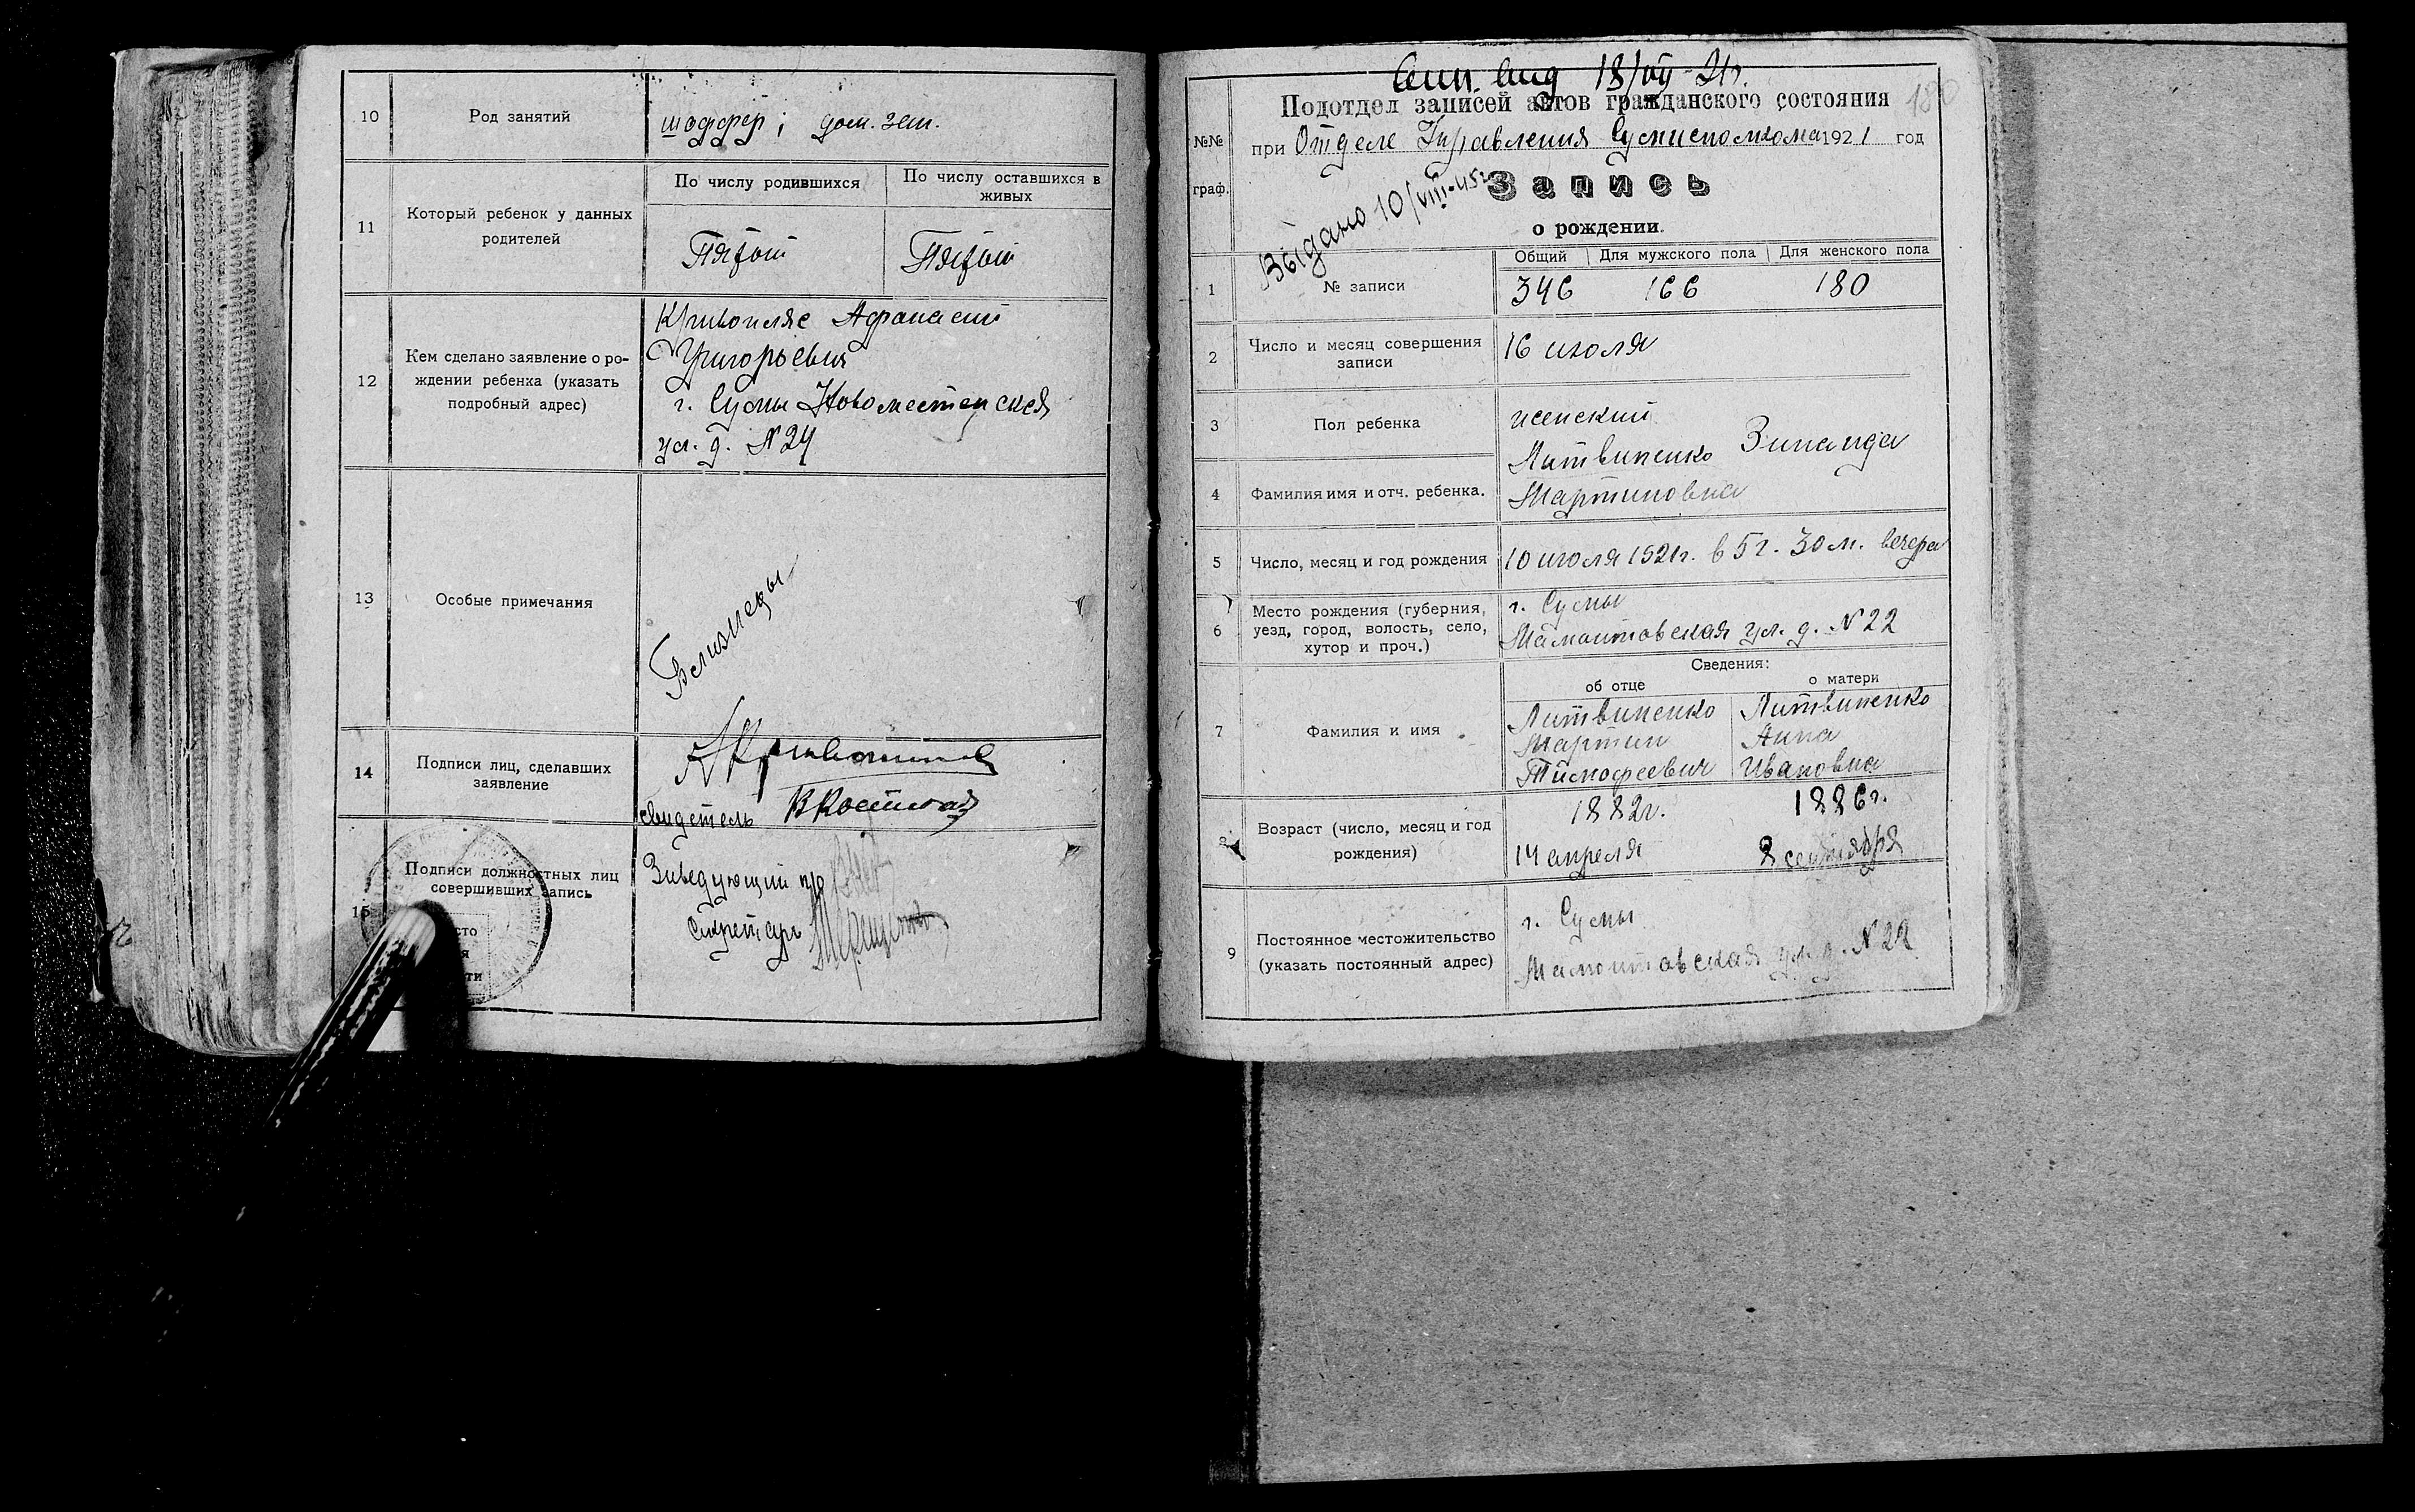 10
Род занятий
шоффер; дом. зем.
11
Который ребенок у данных
родителей
По числу родившихся
По числу оставшихся в
живых
Пятый
Пятый
12
Кем сделано заявление о ро-
ждении ребенка (указать
подробный адрес)
Афанасий
Григорьевич
г. Сумы Новоместенская
ул. д. N 24
13
Особые примечания
Близнецы
14
Подписи лиц, сделавших
заявление
свидетель
15
Подписи должностных лиц
совершивших запись
Заведующий п/о
Секретарь
18/VII-21г.
180
Подотдел записей актов гражданского состояния
при Отделе Управления Сумисполкома 1921 год
№№
граф.
Выдано 10/VIII-45г
Запись
о рождении.
1
№ записи
Общий
Для мужского пола
Для женского пола
346
166
180
2
Число и месяц совершения
записи
16 июля
3
Пол ребенка
женский
4
Фамилия имя и отч. ребенка.
Литвиненко Зинаида
Мартиновна
5
Число, месяц и год рождения
10 июля 1921г. в 5 г. 30 м. вечера
6
Место рождения (губерния,
уезд, город, волость, село,
хутор и проч.)
г. Сумы
Мамонтовская ул. д. N 22
Сведения:
об отце
о матери
7
Фамилия и имя
Литвиненко
Мартин
Тимофеевич
Литвиненко
Анна
Ивановна
8
Возраст (число, месяц и год
рождения)
1882г.
14 апреля
1886г.
8 сентября
9
Постоянное местожительство
(указать постоянный адрес)
г. Сумы
Мамонтовская ул. д. N 22